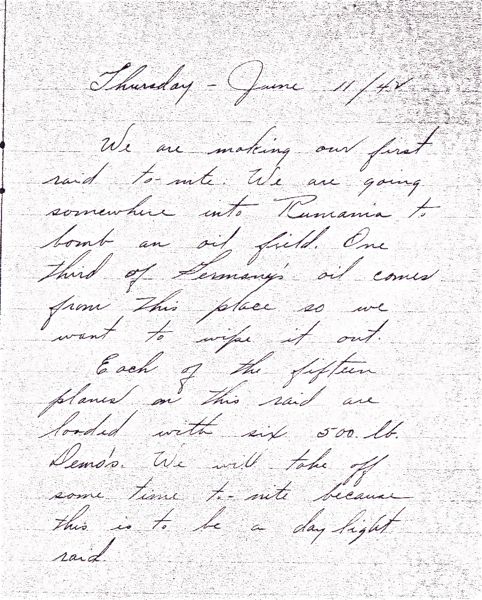 Thursday - June 11/42
We are making our first
raid to-nite. We are going
somewhere into Rumania to
bomb an oil field. One
third of Germany's oil comes
from this place so we
want to wipe it out.
Each of the fifteen
planes on this raid are
loaded with six 500. lb.
Demo's. We will take off
some time to-nite because
this is to be a day light
raid.